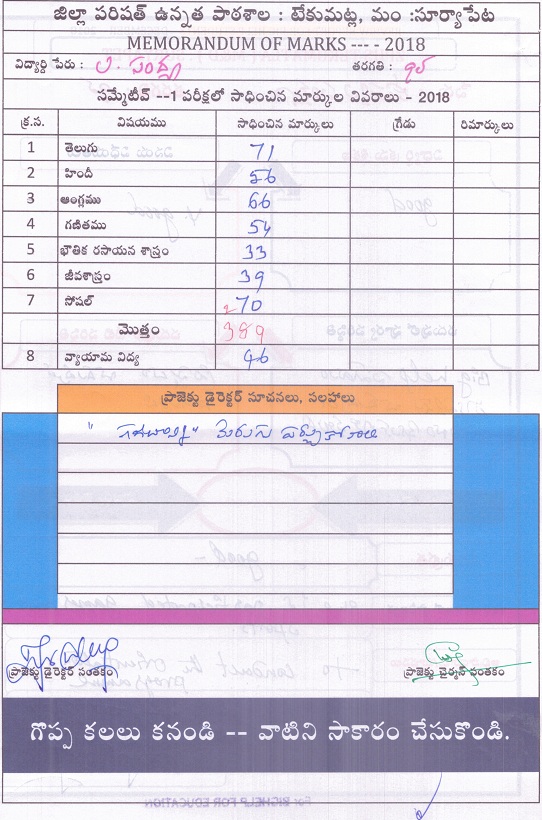 జిల్లా పరిషత్ ఉన్నత పాఠశాల : టేకుమట్ల, మం :సూర్యాపేట
MEMORANDUM OF MARKS --- - 2018
విద్యార్థి పేరు : తరగతి :
సమ్మేటీవ్ --1 పరీక్షలో సాధించిన మార్కుల వివరాలు - 2018
క్ర.స. విషయము సాధించిన మార్కులు గ్రేడు రిమార్కులు
1 తెలుగు 71
2 హిందీ 56
3 ఆంగ్లము 66
4 గణితము 54
5 భౌతిక రసాయన శాస్త్రం 33
6 జీవశాస్త్రం 39
7 సోషల్ 70
మొత్తం 389
8 వ్యాయామ విద్య 46
ప్రాజెక్టు డైరెక్టర్ సూచనలు, సలహాలు
ప్రాజెక్టు డైరెక్టర్ సంతకం ప్రాజెక్టు చైర్మన్ సంతకం
గొప్ప కలలు కనండి -- వాటిని సాకారం చేసుకొండి.